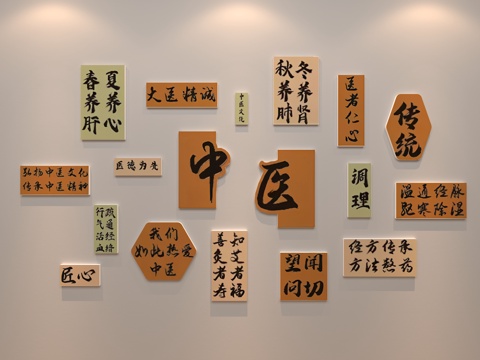 春养肝
夏养心
大医精诚
中医文化
秋养肺
冬养肾
医者仁心
传统
弘扬中医文化
传承中医精神
中医
调理
温通经脉
驱寒除湿
疏通经络
行气活血
我们
如此热爱
中医
知艾者福
善灸者寿
望闻
问切
经方传承
方法熬药
匠心